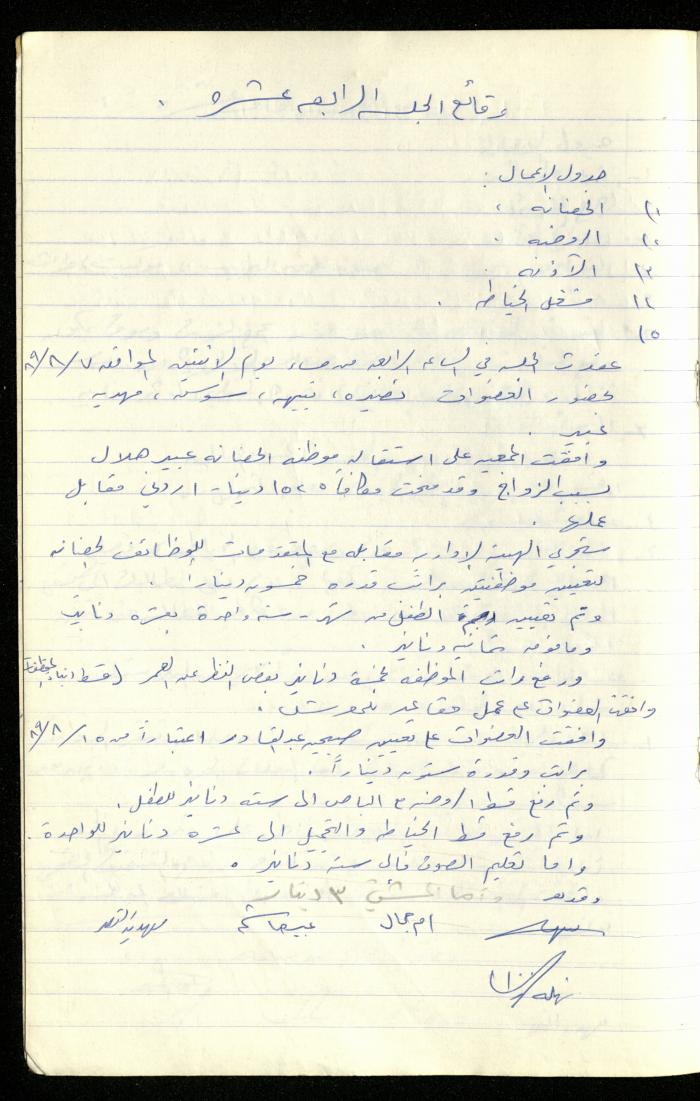 وقائع الجلسة الرابعة عشره .
جدول الاعمال :
١) الحضانه .
٢) الروضه .
٣) الآذنه .
٤) مشغل الخياطه .
٥)
عقدت الجلسه في الساعه الرابعه من مساء يوم الاثنين الموافقه ٨٩/٨/٧
بحضور العضوات نضيره ، نبيهه ، سوسن ، مهديه
عبير .
وافقت الجمعيه على استقاله موظفه الحضانه عبير هلال
بسبب الزواج وقد منحت مكافأه ١٥٢٥ دينار اردني مقابل
عملها .
ستجري الهيئة الاداريه مقابله مع المتقدمات للوظائف لحضانه
لتعيين موظفتين براتب قدره خمسون دينارا .
وتم تعيين اجرة الطفل من شهر - سنه واحدة بعشره دنانير
وما فوق ثمانيه دنانير .
ورفع راتب الموظفه خمسة دنانير بغض النظر عن العمر (قسط ابناء الموظفات)
وافقت العضوات على عمل مقاعد للحوش .
وافقت العضوات على تعيين صبحيه عبد القادر اعتباراً من ٨٩/٨/١٥
براتب وقدرة ستون ديناراً .
وتم رفع قسط الروضه مع الباص الى سته دنانير للطفل .
وتم رفع قسط الخياطه والتجميل الى عشره دنانير للواحدة .
واما تعليم الصوف فالى سته دنانير .
وقدمه واما المشتق ٣ دينار
ام جمال عبير هاشم مهديه
نهله